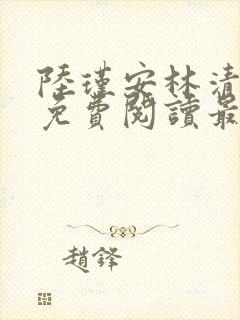 陸瑾安林清
免費閱讀最
趙鋒